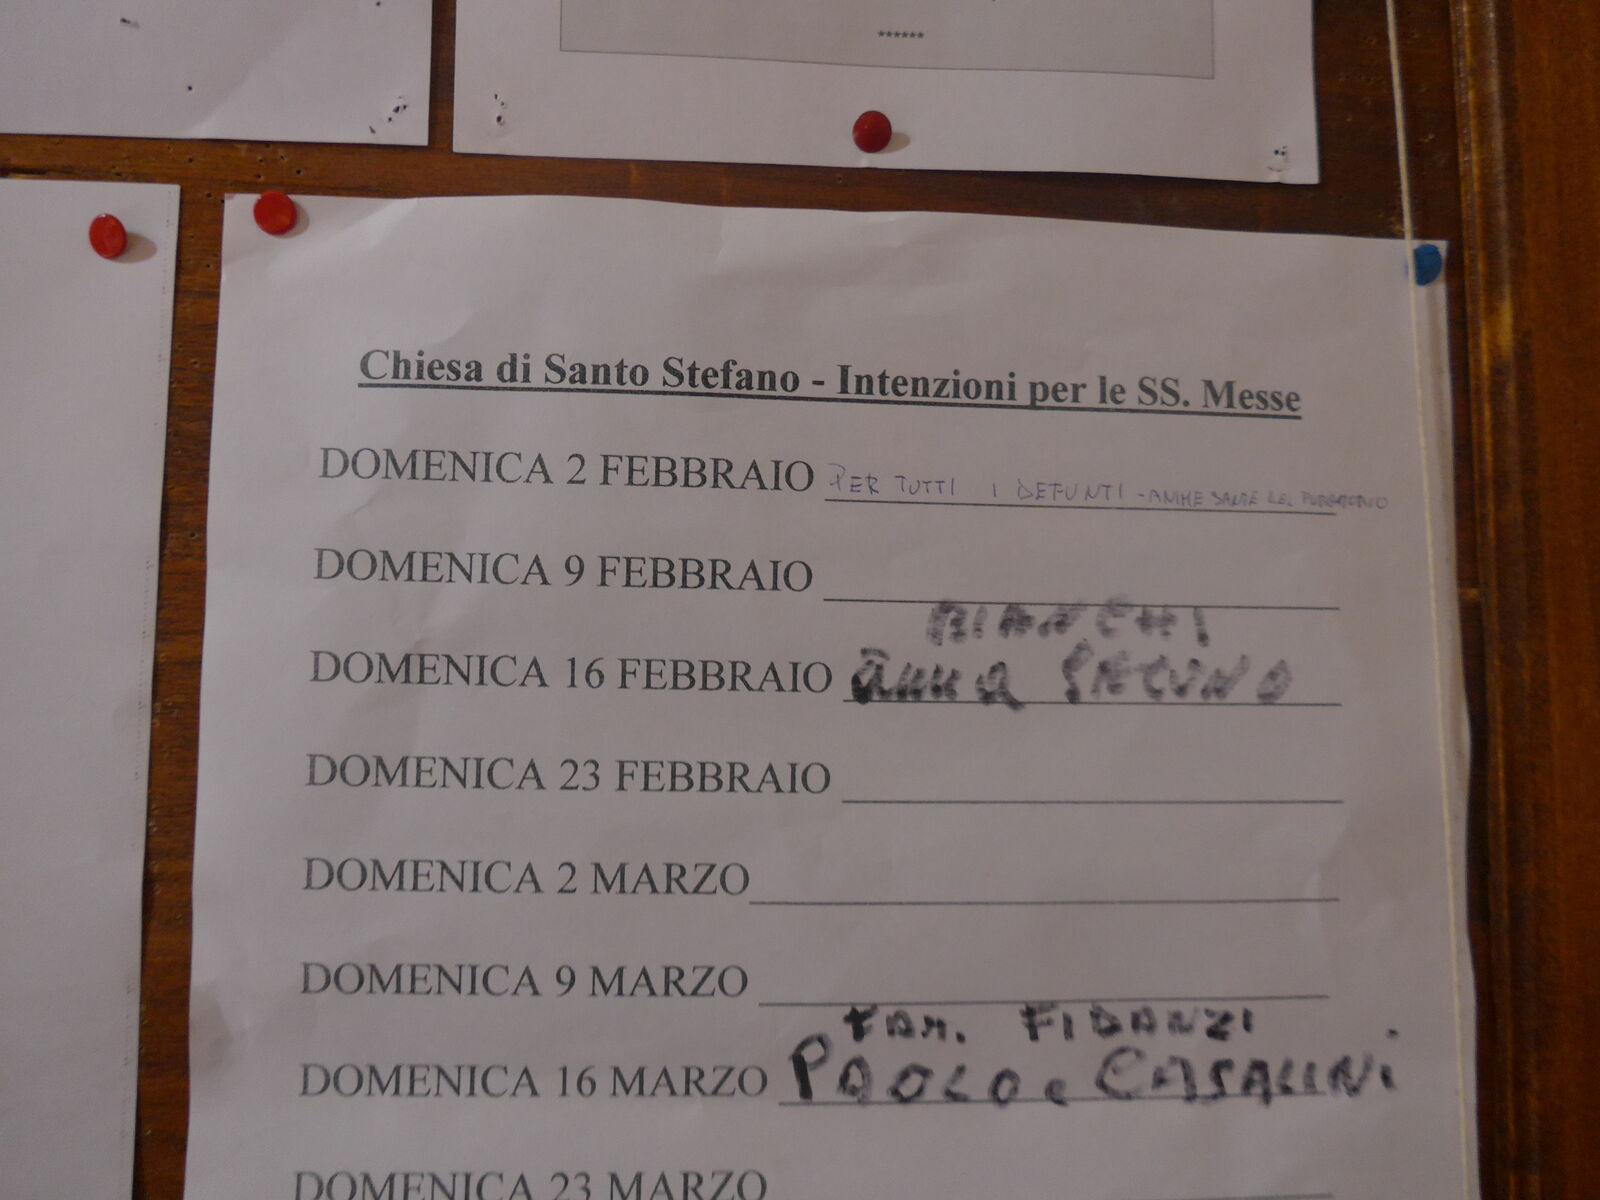 ******
Chiesa di Santo Stefano - Intenzioni per le SS. Messe
DOMENICA 2 FEBBRAIO PER TUTTI I DEFUNTI - ANIME SANTE DEL PURGATORIO
DOMENICA 9 FEBBRAIO
BIANCHI
DOMENICA 16 FEBBRAIO anna
DOMENICA 23 FEBBRAIO
DOMENICA 2 MARZO
DOMENICA 9 MARZO
FAM. FIDANZI
DOMENICA 16 MARZO PAOLO e CASALINI
DOMENICA 23 MARZO